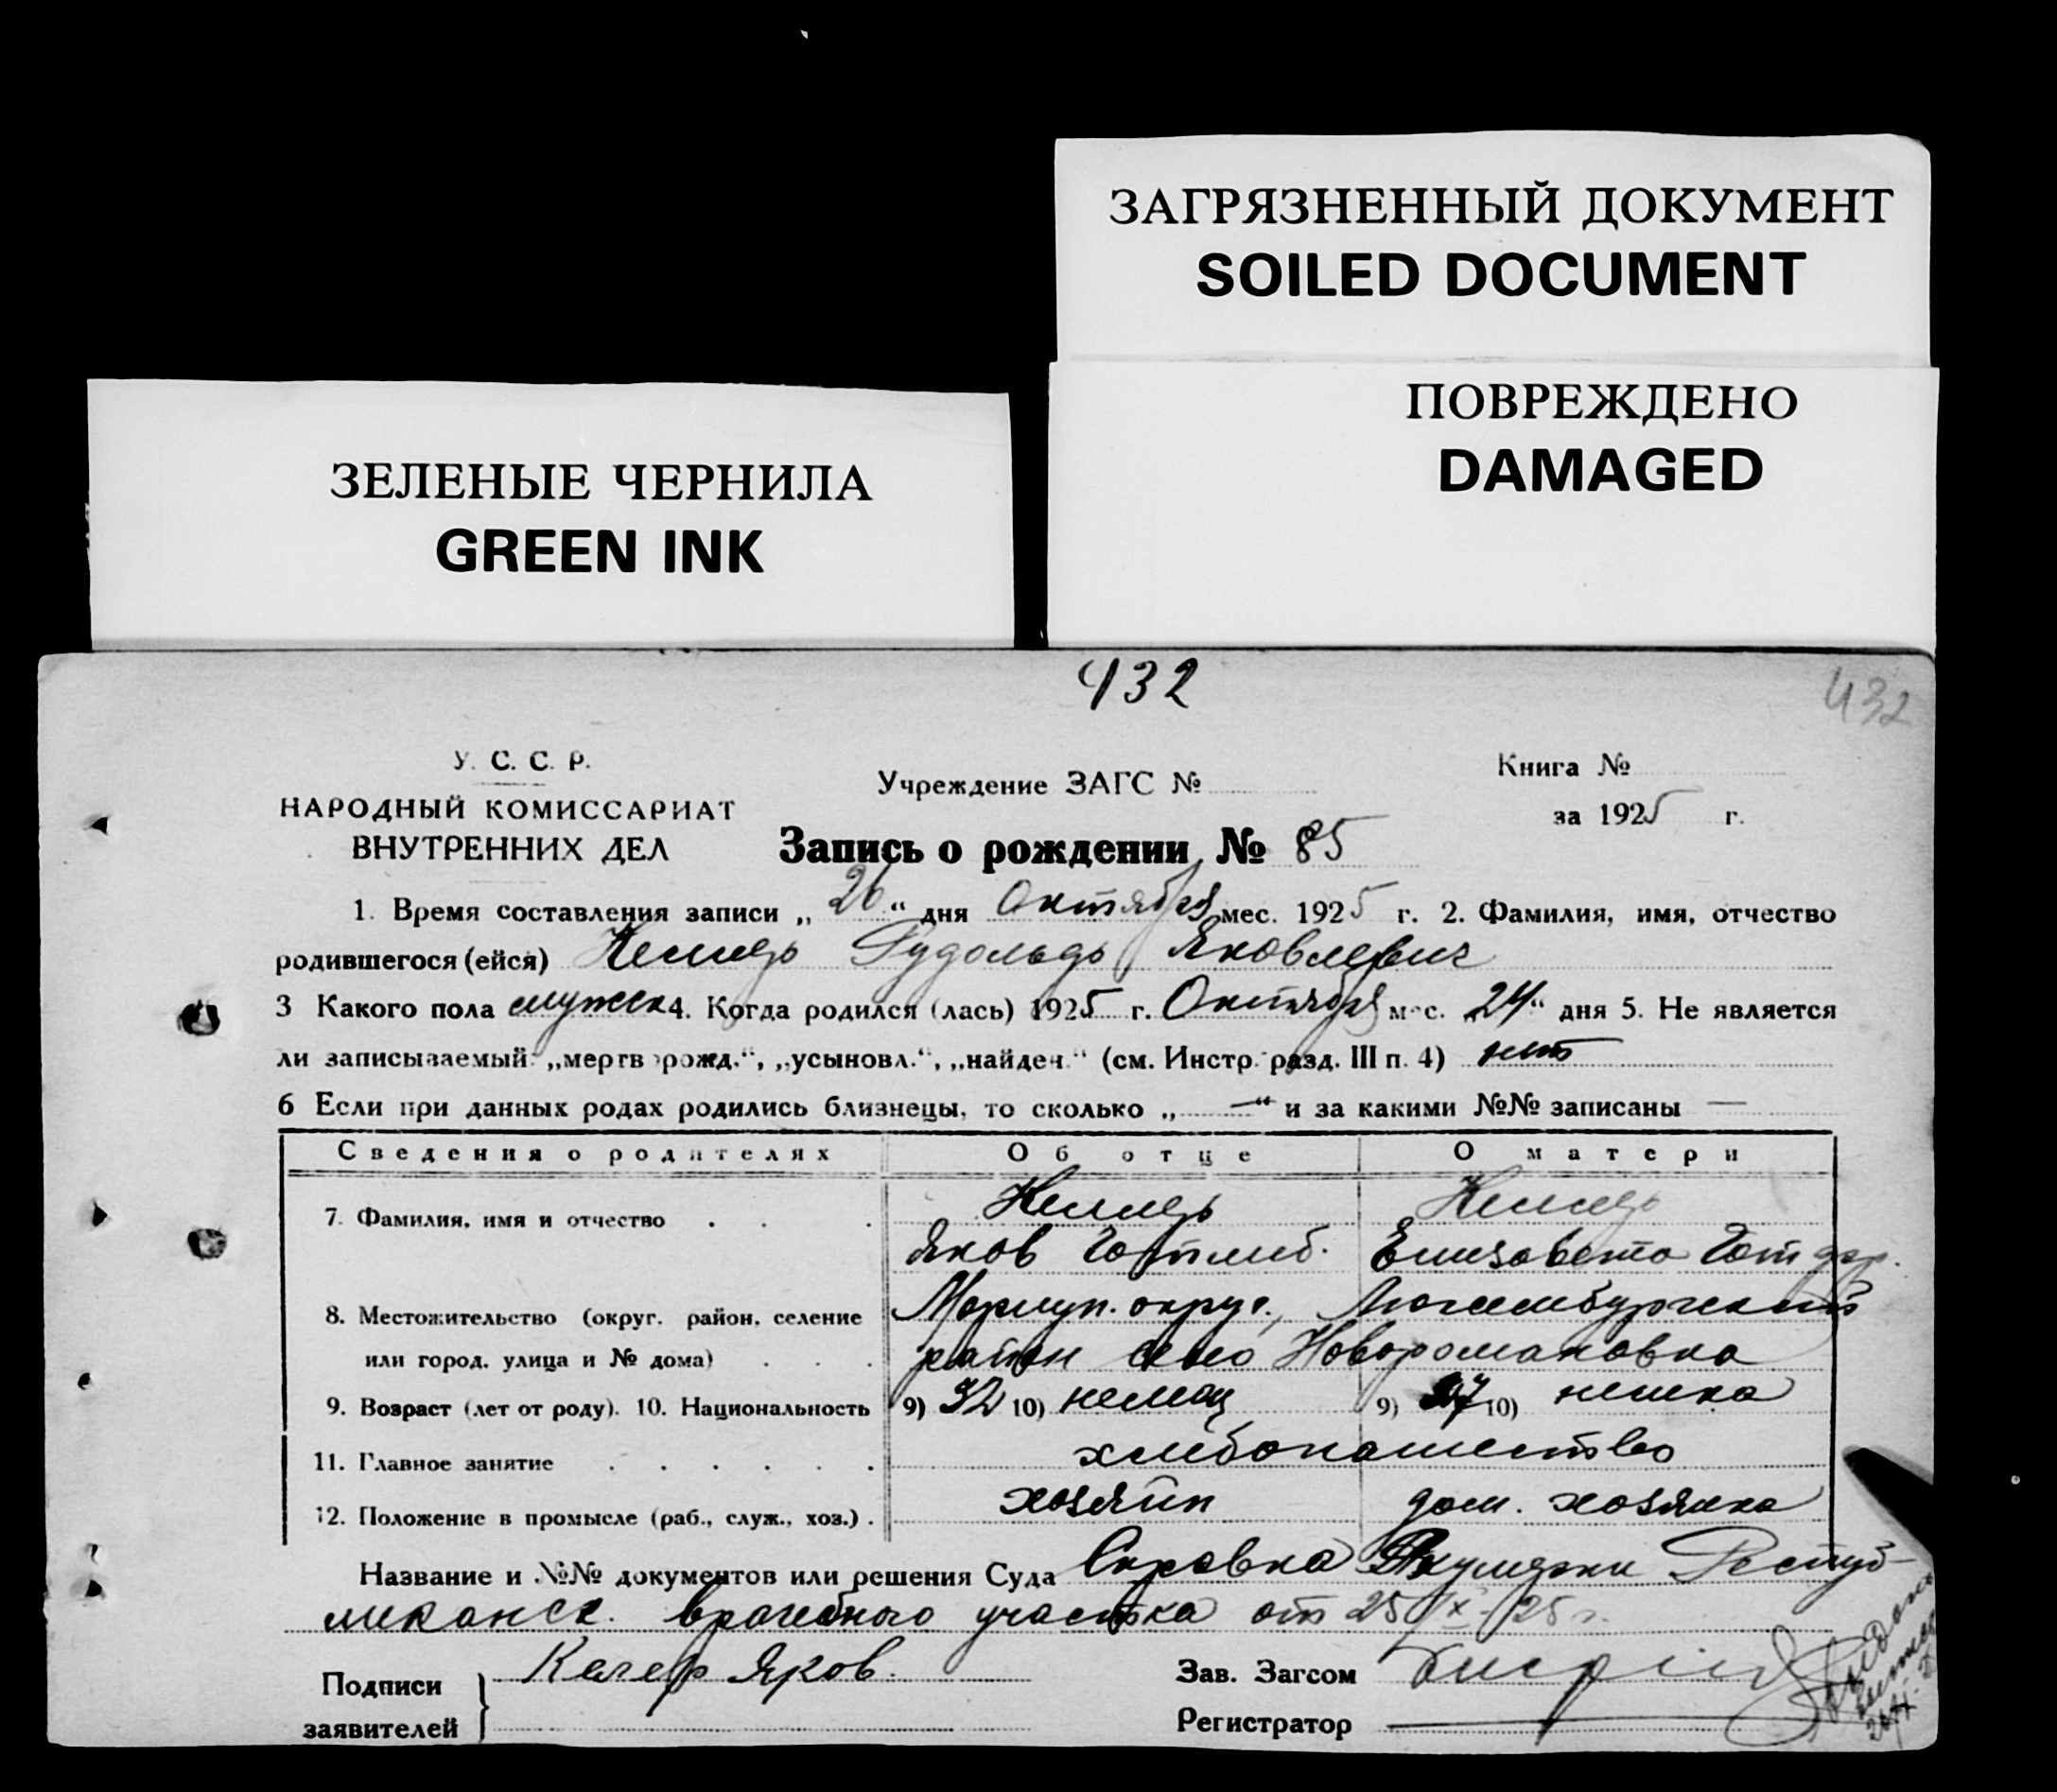 ЗАГРЯЗНЕННЫЙ ДОКУМЕНТ
SOILED DOCUMENT
ПОВРЕЖДЕНО
DAMAGED
ЗЕЛЕНЫЕ ЧЕРНИЛА
GREEN INK
432
432
У. С. С. Р.
НАРОДНЫЙ КОМИССАРИАТ
ВНУТРЕННИХ ДЕЛ
Учреждение ЗАГС №
Книга №
за 1925 г.
Запись о рождении № 85
1. Время составления записи „26“ дня Октября мес. 1925 г. 2. Фамилия, имя, отчество
родившегося (ейся) Рудольдь Яковлевич
3 Какого пола мужск 4. Когда родился (лась) 1925 г. Октября мес. „24“ дня 5. Не является
ли записываемый: „мертворожд.“, „усыновл.“, „найден.“ (см. Инстр. разд. III п. 4) нет
6 Если при данных родах родились близнецы, то сколько „—“ и за какими №№ записаны —
Сведения о родителях Об отце О матери
7. Фамилия, имя и отчество
Яков Готлиб. Елизавета Гот
8. Местожительство (округ. район, селение Мариуп. округ., Люксембургский
или город, улица и № дома) район село Новоромановка
9. Возраст (лет от роду). 10. Национальность 9) 32 10) немец 9) 27 10) немка
11. Главное занятие хлебопашество
12. Положение в промысле (раб., служ., хоз.) хозяин дом. хозяйка
Название и №№ документов или решения Суда Справка Акушерки Респуб-
ликанск. врачебного участка от 25/X-25 г.
Подписи
заявителей
Яков.
Зав. Загсом
Регистратор